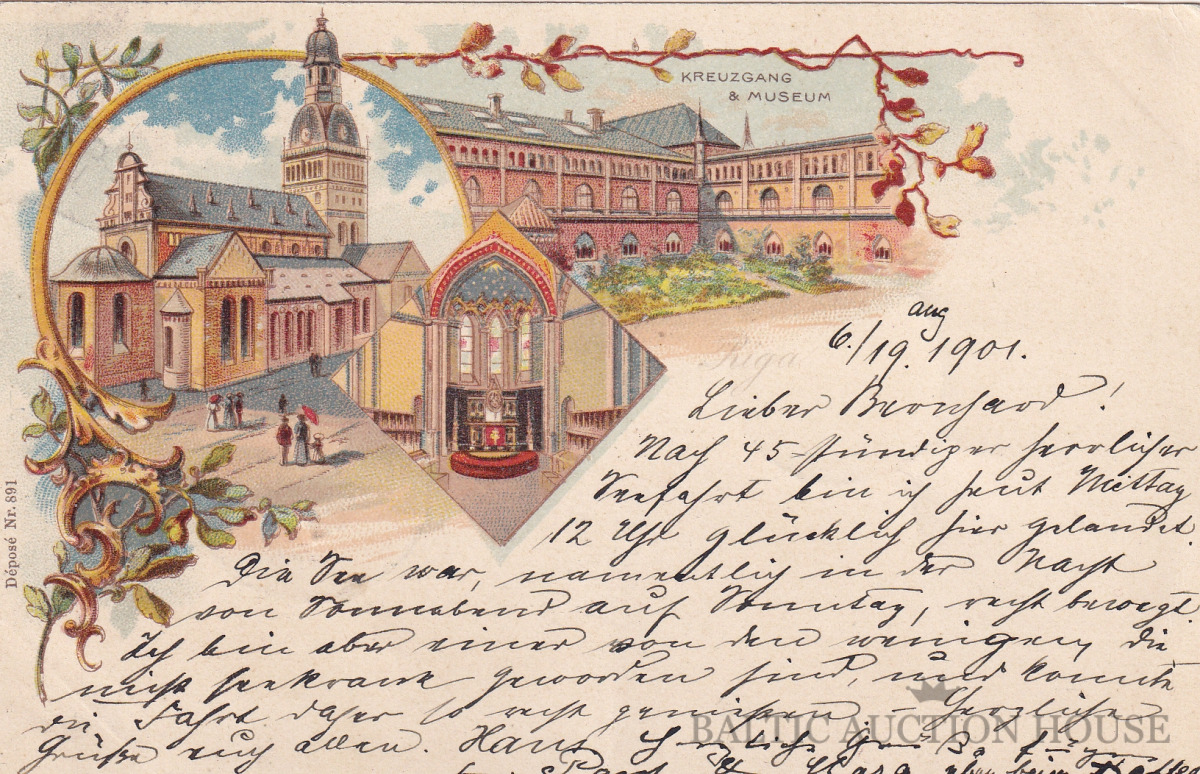 KREUZGANG
& MUSEUM
Riga
aug
6./19. 1901.
Lieber Bernhard!
Nach 45-stündiger herrlicher
Seefahrt bin ich heut Mittag
12 Uhr glücklich hier gelandet.
Die See war, namentlich in der Nacht
von Sonnabend auf Sonntag, recht bewegt.
Ich bin aber einer von den wenigen, die
nicht seekrank geworden sind, und konnte
die Fahrt daher so recht genießen – Herzliche
Grüße euch allen. Hans Herzliche Grüße
Déposé Nr. 891
BALTIC AUCTION HOUSE